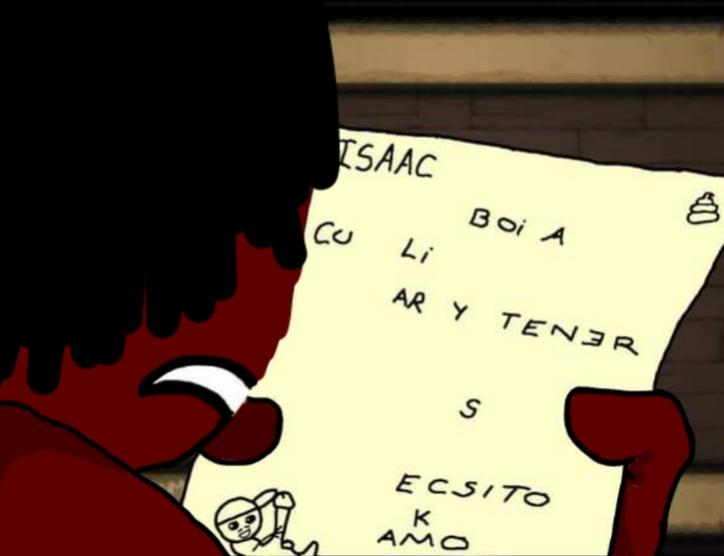 ISAAC
BOi A
CU Li
AR Y TENER
S
ECSITO
K
AMO